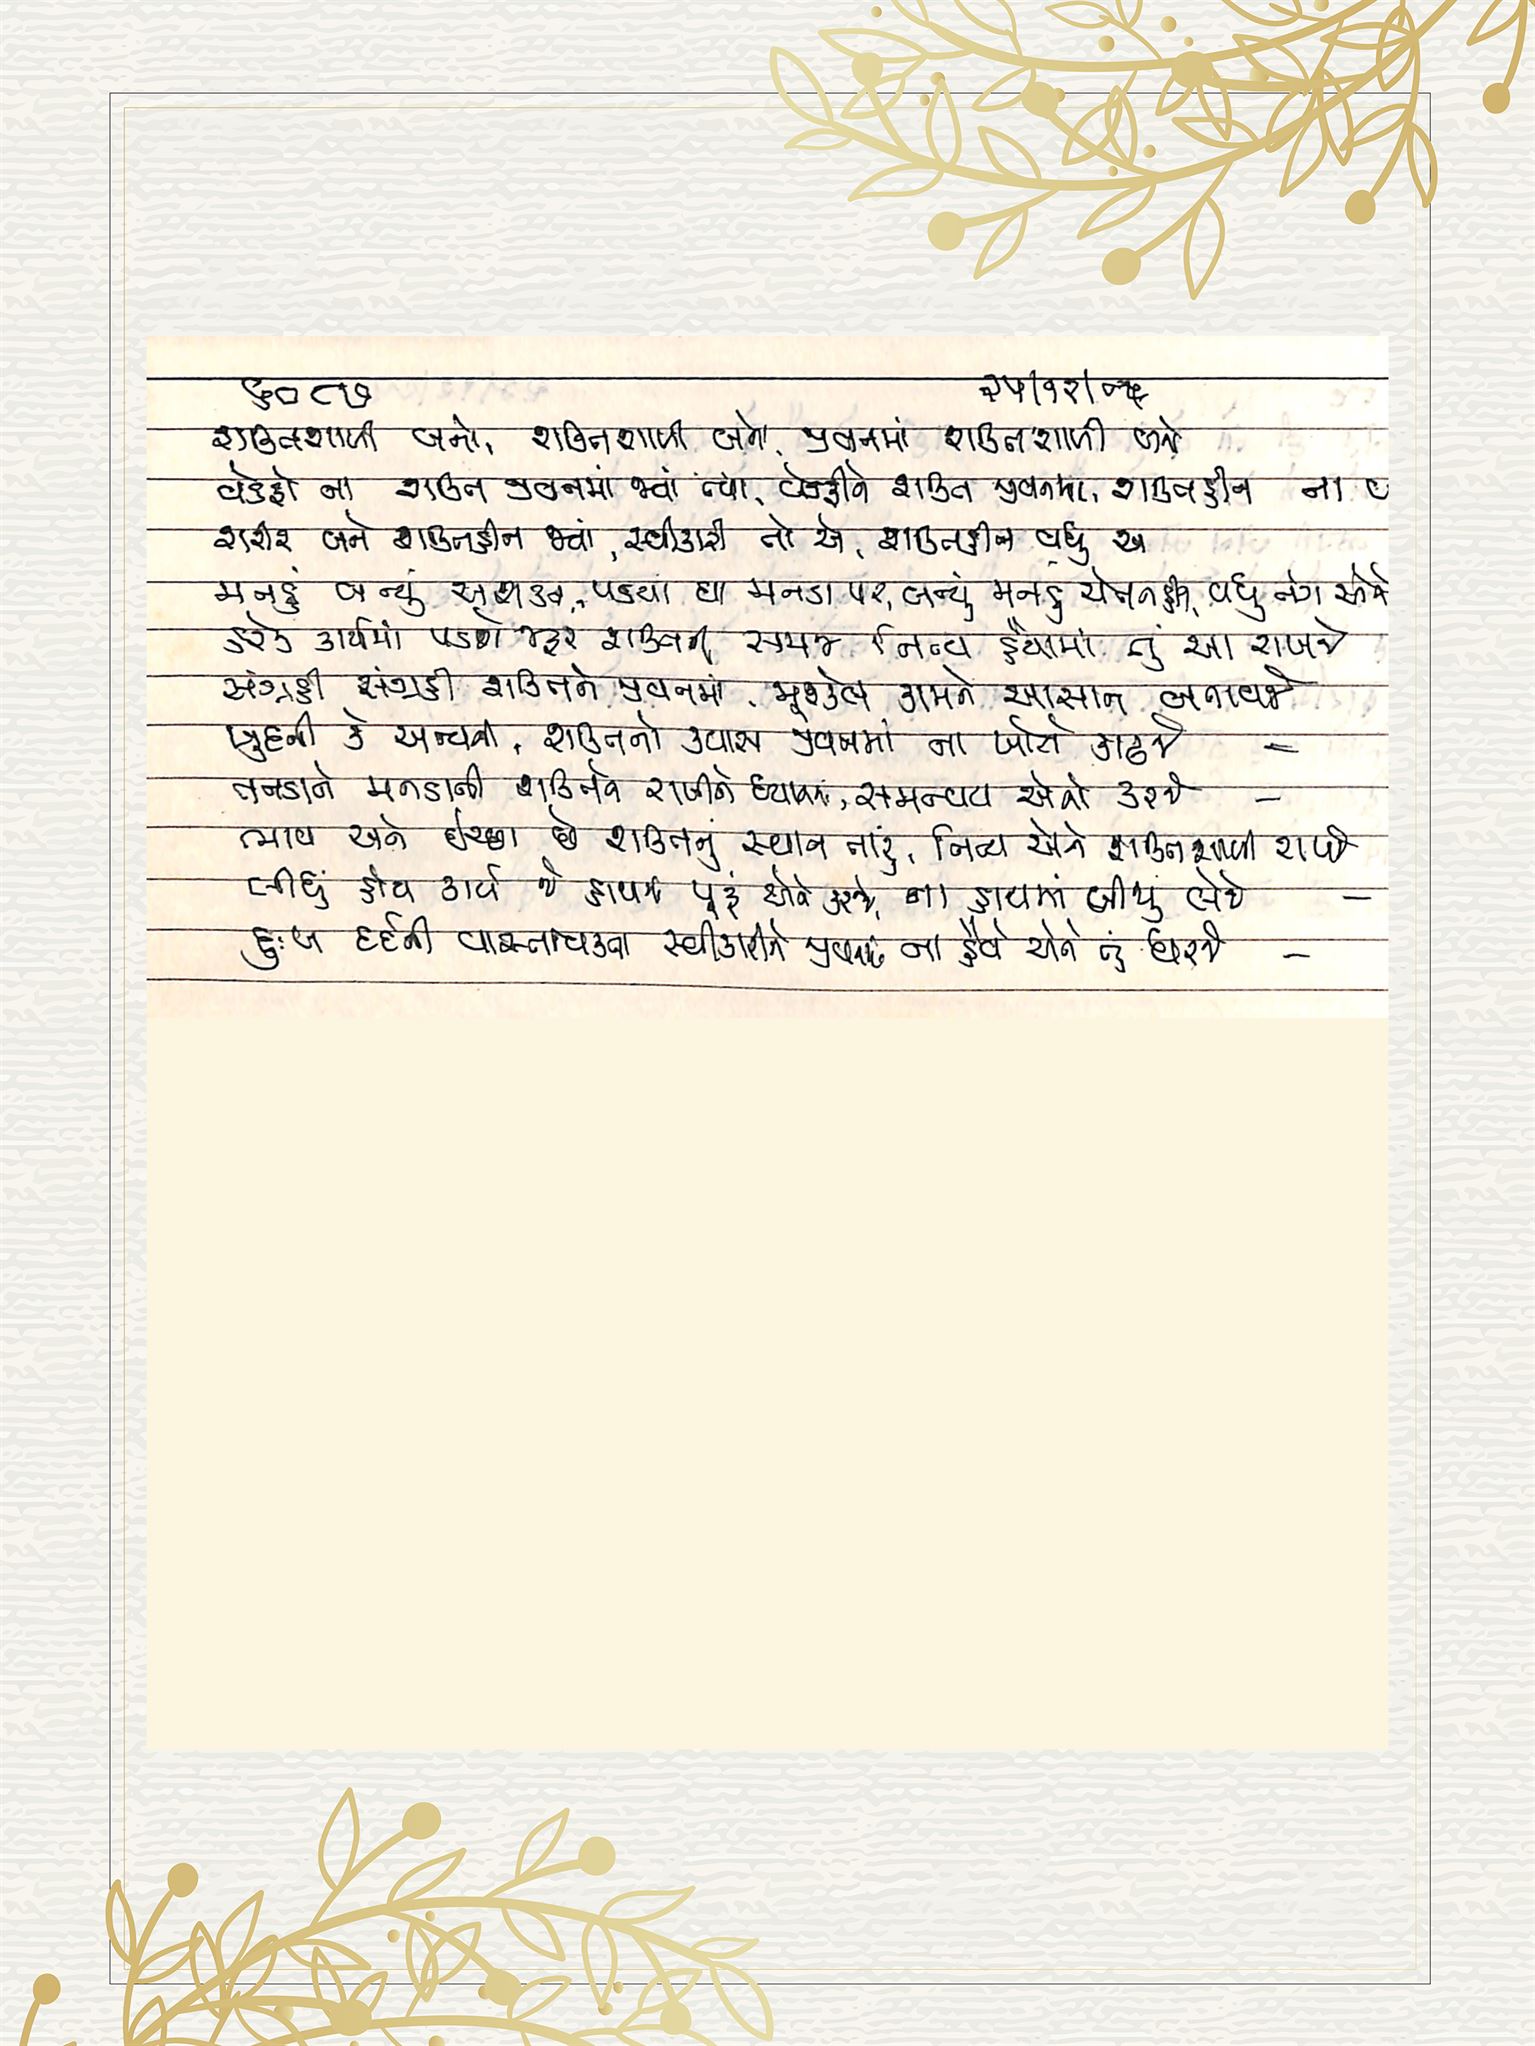 શક્તિશાળી બનો, શક્તિશાળી બનો, જીવનમાં શક્તિશાળી બનો
વેડફો ના શક્તિ જીવનમાં જ્યાં ત્યાં, વેડફીને શક્તિ જીવનમાં, શક્તિહીન ના
શરીર બને શક્તિહીન જ્યાં, સ્વીકારી તો લે, શક્તિહીન વધુ
મનડું બન્યું અશક્ત, પડયા ઘા મનડા પર, બન્યું મનડું ચેતનહીન, વધુ તંગ
હરેક કાર્યમાં પડશે જરૂર શક્તિની સમજ નિત્ય હૈયામાં તું આ રાખજે
સંગ્રહી સંગ્રહી શક્તિને જીવનમાં, મુશ્કેલ કામને આસાન બનાવજે
ખુદની કે અન્યની, શક્તિનો ક્યાસ જીવનમાં ના ખોટો કાઢજે -
તનડાને મનડાની શક્તિને રાખીને ધ્યાનમાં, સમન્વય એનો કરજે -
ભાવ અને ઈચ્છા છે શક્તિનું સ્થાન તારું, નિત્ય એને શક્તિશાળી રાખજે
લીધું હોય કાર્ય જે હાથમાં પૂરું એને કરજે, ના હાથમાં બીજું લેજે -
દુઃખ દર્દની વાસ્તવિકતા સ્વીકારીને જીવનમાં ના હૈયે એને તું ધરજે -